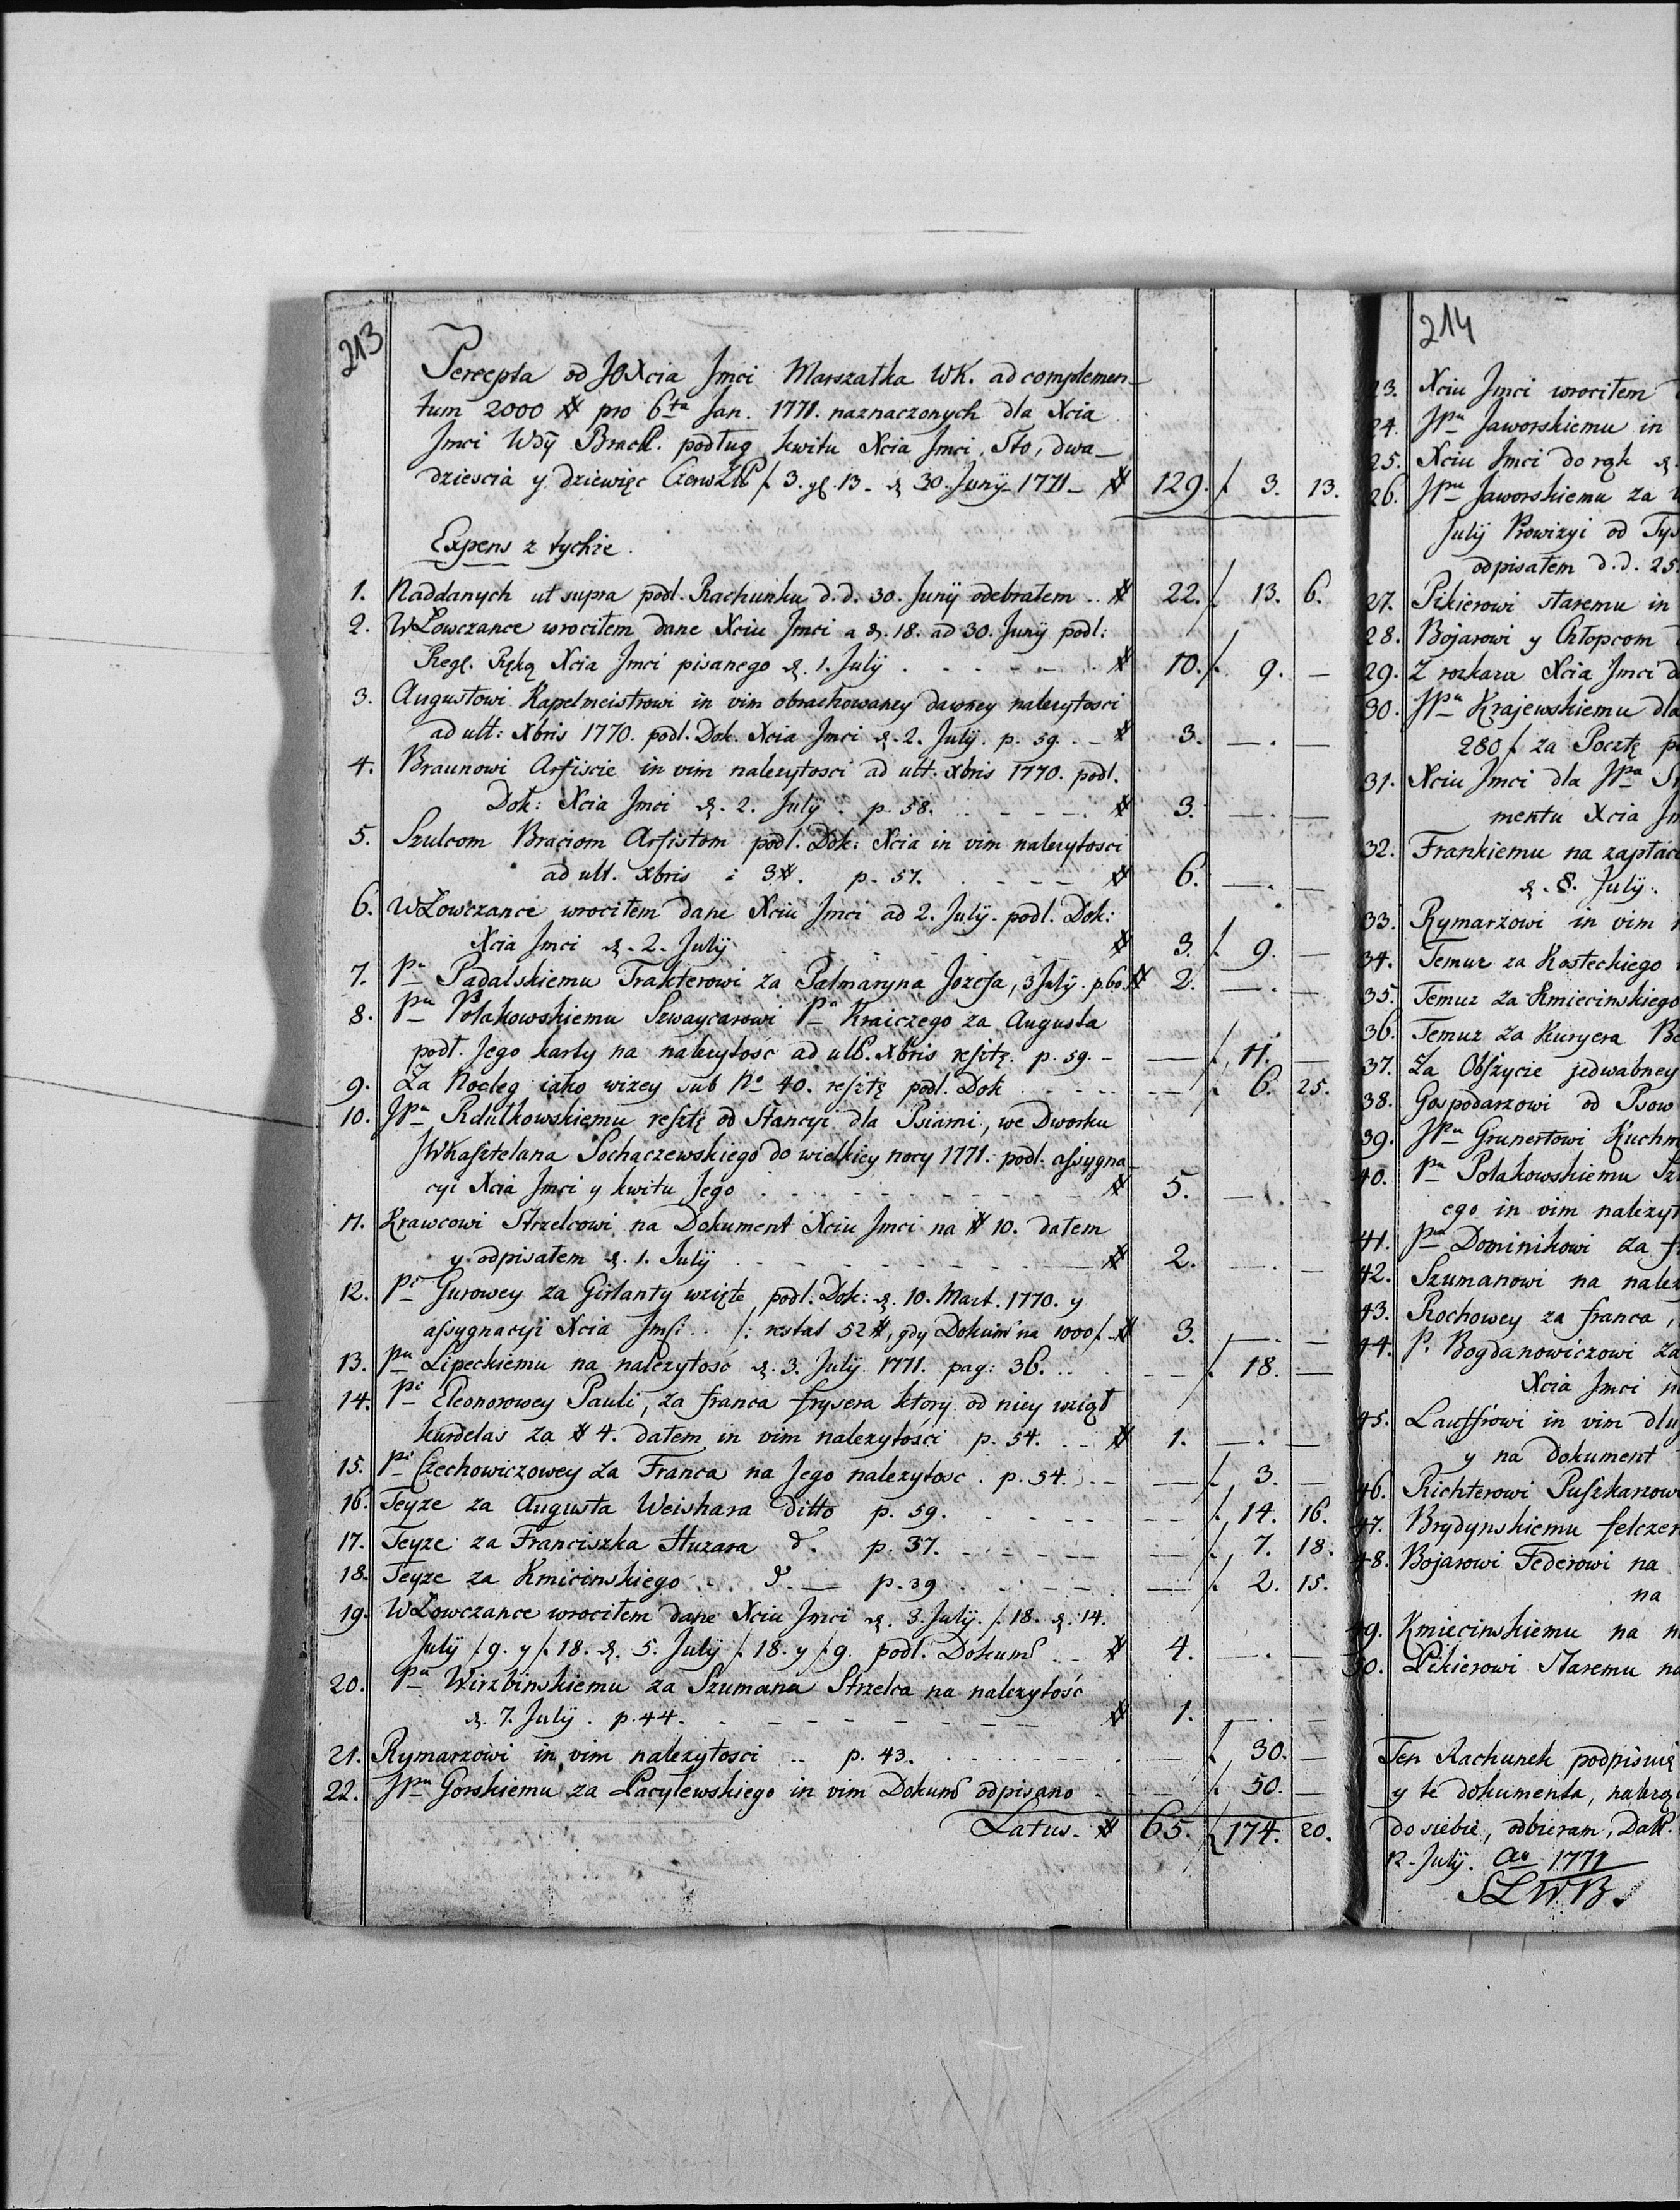 213
Percepta od JOXcia Jmci Marszałka WK. ad complemen-
tum 2000 # pro 6ta Jan. 1771. naznaczonych dla Xcia
Jmci Wdy Bracł. podług kwitu Xcia Jmci, Sto, dwa-
dziescia y dziewięc CzerwZł f 3. gł. 13. d. 30. Junÿ 1771 # 129. f. 3. 13.
Expens z tychże.
1. Naddanych ut supra podł. Rachunku d.d. 30. Junÿ odebrałem .. # 22. f. 13. 6.
2. WŁowczance wrociłem dane Xciu Jmci a d. 18. ad 30. Junÿ podł:
Regę. Ręką Xcia Jmci pisanego d. 1. Julÿ # 10. f. 9. —
3. Augustowi Kapelmeistrowi in vim obrachowaney dawney nalezytosci
ad ult: Xbris 1770. podł. Dok. Xcia Jmci d. 2. Julÿ. p. 59. # 3. — —
4. Braunowi Arfiscie in vim nalezytosci ad ult. Xbris 1770. podł.
Dok: Xcia Jmci d. 2. Julÿ. p. 58. # 3. — —
5. Szulcom Braciom Arfistom podł. Dok: Xcia in vim nalezytosci
ad ult. Xbris à 3#. p. 57. # 6. — —
6. WŁowczance wrociłem dane Xciu Jmci ad 2. Julÿ. podł. Dok:
Xcia Jmci d. 2. Julÿ # 3. f. 9. —
7. Pu Padalskiemu Trakterowi za Palmaryna Jozefa, 3 Julÿ. p. 60. # 2. — —
8. Pu Połakowskiemu Szwaycarowi Pa Kraiczego za Augusta
podł. Jego karty na nalezytosc ad ult. Xbris resztę. p. 59. — f. 11. —
9. Za Nocleg iako wizey sub No 40. resztę podł. Dok — f. 6. 25.
10. JPu Rdułkowskiemu resztę od Stancyi dla Psiarni, we Dworku
JWKasztelana Sochaczewskiego do wielkiey nocy 1771. podł. assygna-
cyi Xcia Jmci y kwitu Jego # 5. — —
11. Krawcowi Strzelcowi na Dokument Xciu Jmci na # 10. dałem
y odpisałem d. 1. Julÿ # 2. — —
12. Pi Gurowey za Girlanty wzięte podł. Dok: d. 10. Mart. 1770. y
assygnacyi Xcia Jmci .. /: restat 52 #, gdy Dokum na 1000 f. # 3. — —
13. Pu Lipeckiemu na nalezytosć d. 3. Julÿ 1771. pag: 36. .. — f. 18. —
14. Pi Eleonorowey Pauli, za franca frysera ktory od niey wziął
kurdelas za # 4. dałem in vim nalezytości p. 54. # 1. — —
15. Pi Czechowiczowey za Franca na Jego nalezytosc. p. 54. — f. 3. —
16. Teyze za Augusta Weishara Ditto p. 59. — f. 14. 16.
17. Teyze za Franciszka Huzara d. p. 37. — f. 7. 18.
18. Teyze za Kmicinskiego d. — p. 39 — f. 2. 15.
19. WŁowczance wrociłem dane Xciu Jmci d. 3. Julÿ. f. 18. d. 14.
Julÿ f. 9. y f. 18. d. 5. Julÿ f. 18. y f. 9. podł. Dokum # 4. — —
20. Pu Wirzbinskiemu za Szumana Strzelca na nalezytość
d. 7. Julÿ. p. 44. # 1. — —
21. Rymarzowi in vim nalezytosci .. p. 43. — f. 30. —
22. JPu Gorskiemu za Pacylewskiego in vim Dokum odpisano — f. 50. —
Latus. # 65. f 174. 20.
214
23. Xciu Jmci wrociłem
24. JPu Jaworskiemu in
25. Xciu Jmci do rąk d.
26. JPu Jaworskiemu za
Julÿ Prowizyi od Tys
odpisałem d.d. 25.
27. Pikierowi staremu in
28. Bojarowi y Chłopcom
29. Z rozkazu Xcia Jmci d
30. JPu Krajewskiemu dla
280 f. za Pocztę p
31. Xciu Jmci dla JPa
mentu Xcia Jm
32. Frankiemu na zapłac
d. 8. Julÿ.
33. Rymarzowi in vim
34. Temuz za Kosteckiego
35. Temuz za Kmiecinskiego
36. Temuz za Kuryera
37. Za Obszycie jedwabney
38. Gospodarzowi od Psow
39. JPu Grunertowi Kuchm
40. Pu Połakowskiemu Sz
ego in vim nalezyt
41. Pu Dominikowi za f
42. Szumanowi na nalez
43. Rochowey za franca,
44. P. Bogdanowiczowi za
Xcia Jmci
45. Lauffrowi in vim dług
y na dokument
46. Richterowi Puszkarzowi
47. Brydynskiemu felczer
48. Bojarowi Federowi na
na
49. Kmiecinskiemu na n
50. Pikierowi Staremu na
Ten Rachunek podpisuię
y te dokumenta, należą
do siebie, odbieram, Datt.
12. Julÿ. Ao 1771
SLWB.